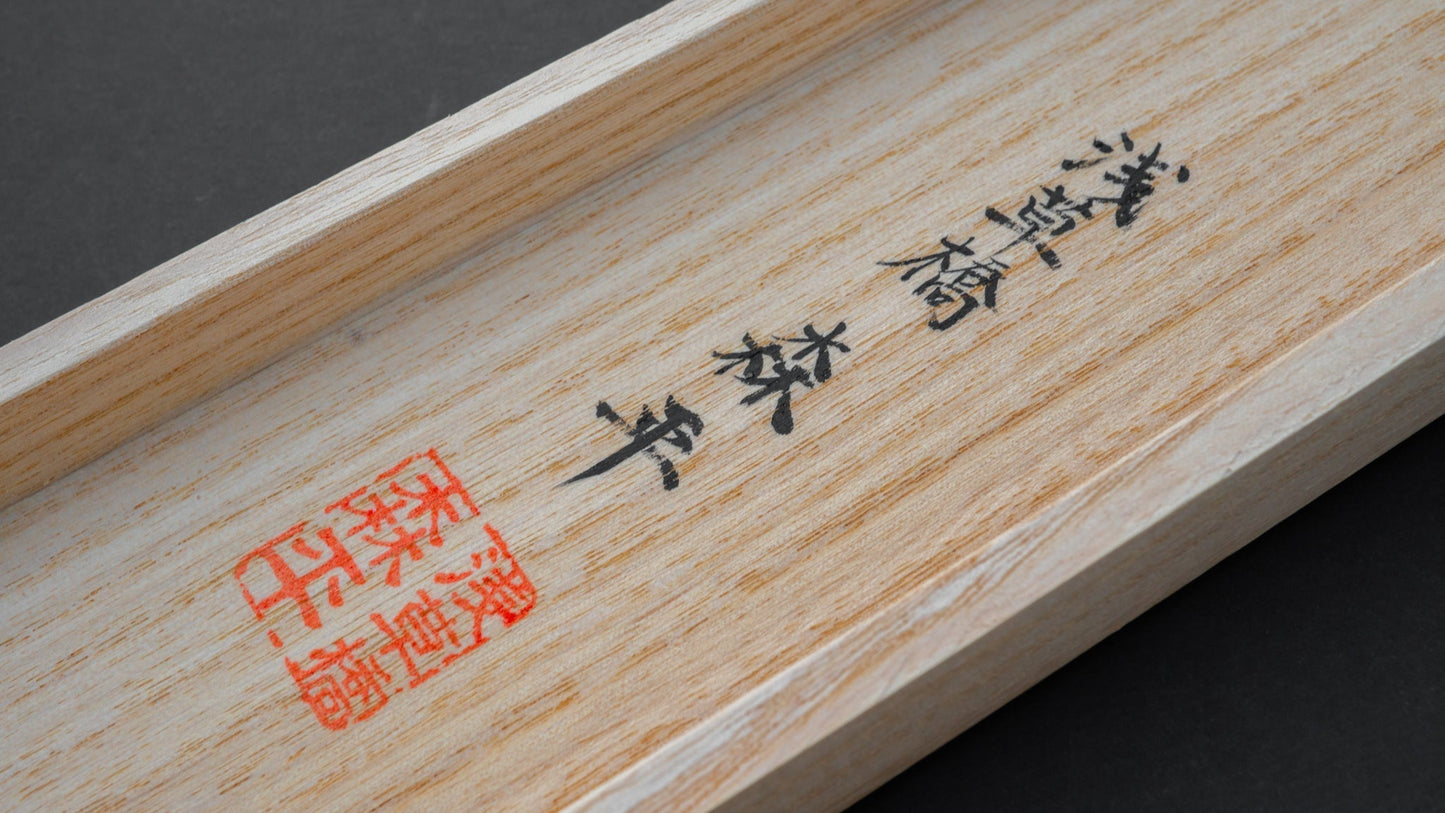 浅草橋 森平
浅草橋
森平